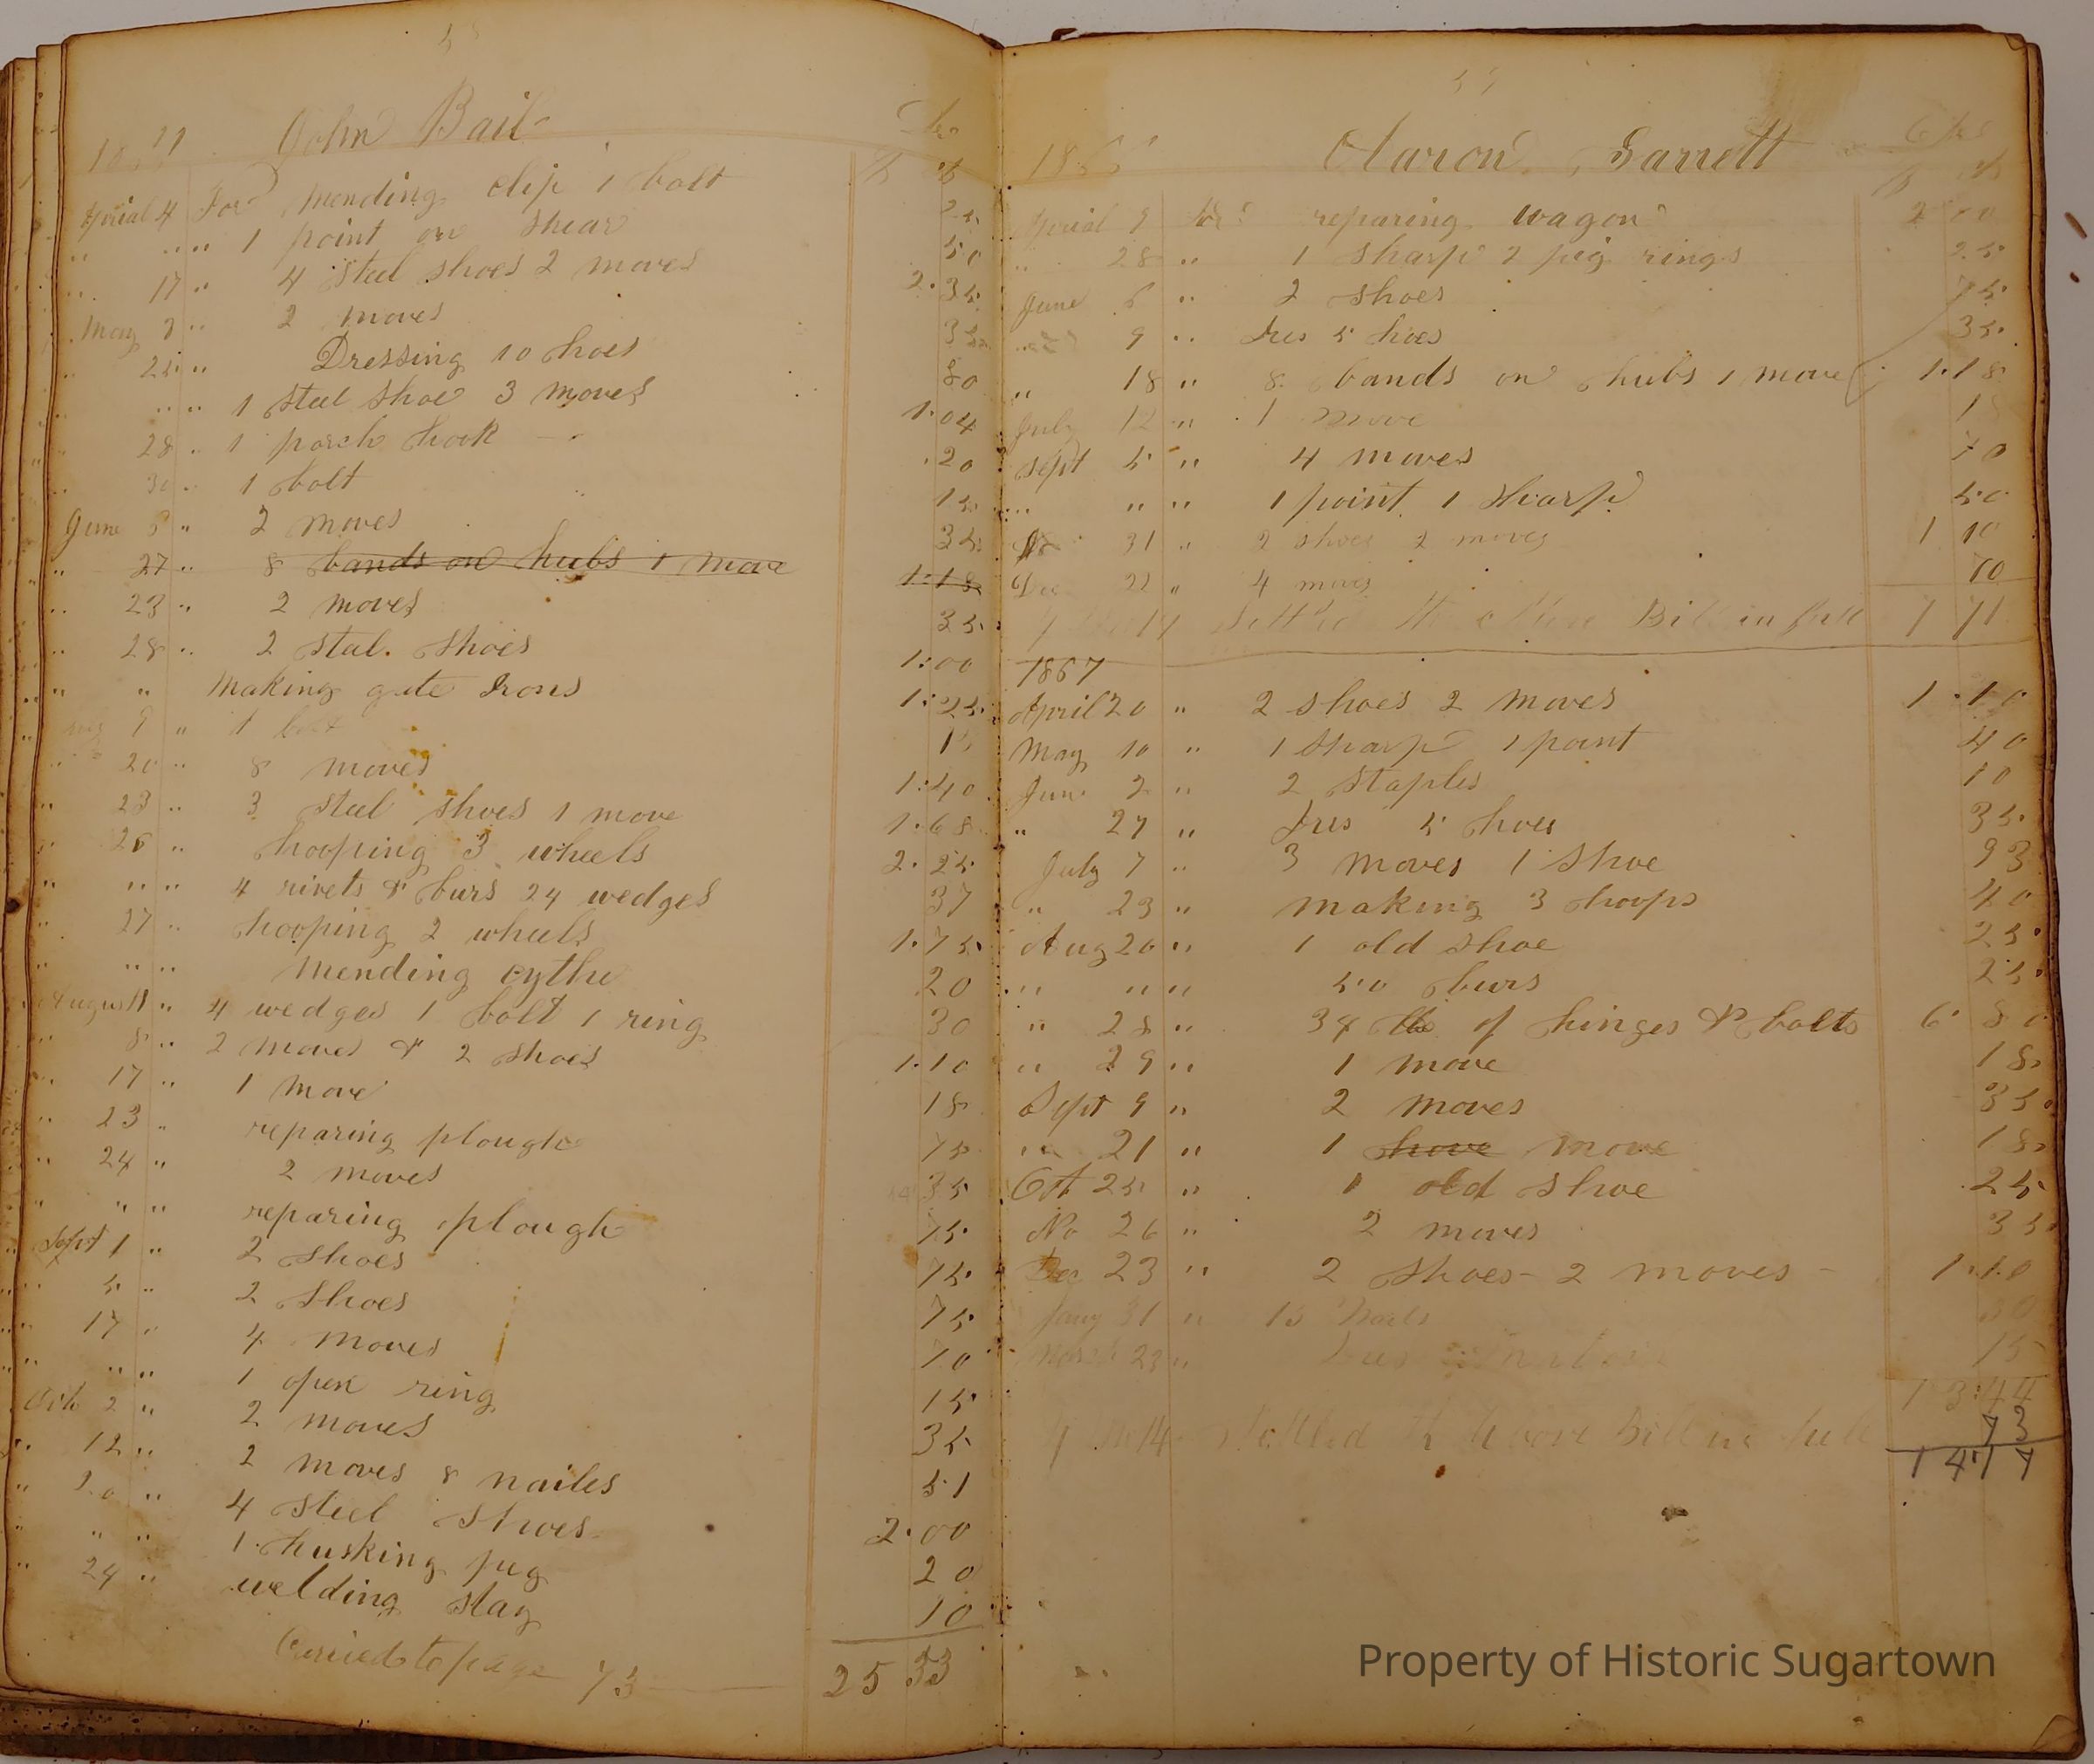 John Bail
Aprial 4 For mending clip 1 bolt 25
" " " 1 point on shear 50
" 17 " 4 Steel shoes 2 moves 2.35
May 8 " 2 moves 35
" 25 " Dressing 10 hoes 80
" " " 1 steel shoe 3 moves 1.04
" 28 " 1 porch hook .20
" 30 " 1 bolt 15
June 5 " 2 moves 35
" 27 " 8 bands on hubs 1 move 1.18
" 23 " 2 moves 35
" 28 " 2 steal. shoes 1:00
" " making gate Irons 1:25
9 " 1 bolt 15
20 " 8 moves 1:40
" 23 " 3 steel shoes 1 move 1:68
" 26 " hooping 3 wheels 2.25
" " " 4 rivets & burs 24 wedges 37
" 27 " hooping 2 wheels 1.75
" " " mending cythe 20
August 1 " 4 wedges 1 bolt 1 ring 30
" 8 " 2 moves & 2 shoes 1.10
" 17 " 1 move 18
" 23 " reparing plough 75
" 24 " 2 moves 35
" " " reparing plough 75
Sept 1 " 2 shoes 75
" 5 " 2 shoes 75
" 17 " 4 moves 70
" " " 1 open ring 15
Oct 2 " 2 moves 35
" 12 " 2 moves 8 nailes 51
" 20 " 4 steel shoes 2.00
" " " 1 husking peg 20
" 24 " welding stay 10
Carried to page 73 25 53
Aaron Garrett
Aprial 9 For reparing wagon 2 00
" 28 " 1 sharp 2 pig rings 25
June 6 " 2 shoes 75
" 9 " Ires 5 hoes 35
" 18 " 8 bands on hubs 1 move 1.18
July 12 " 1 move 18
Sept 5 " 4 moves 70
" " " 1 point 1 sharp 50
31 " 2 shoes 2 moves 1 10
Dec 22 " 4 moves 70
Settled the above Bill in full 7 71
1867
April 20 " 2 shoes 2 moves 1.10
May 10 " 1 sharp 1 point 40
June 2 " 2 staples 10
" 27 " Ires 5 hoes 35
July 7 " 3 moves 1 shoe 93
" 23 " making 3 hoops 40
Aug 20 " 1 old shoe 25
" " " 50 burs 25
" 28 " 34 lbs of hinges & bolts 6 80
" 29 " 1 move 18
Sept 9 " 2 moves 35
" 21 " 1 hove move 18
Oct 25 " 1 old shoe 25
No 26 " 2 moves 35
Dec 23 " 2 shoes - 2 moves - 1.10
Jany 31 " 15 Nails
March 23 " 15
13.44
73
Settled the above Bill in full
14.17
Property of Historic Sugartown